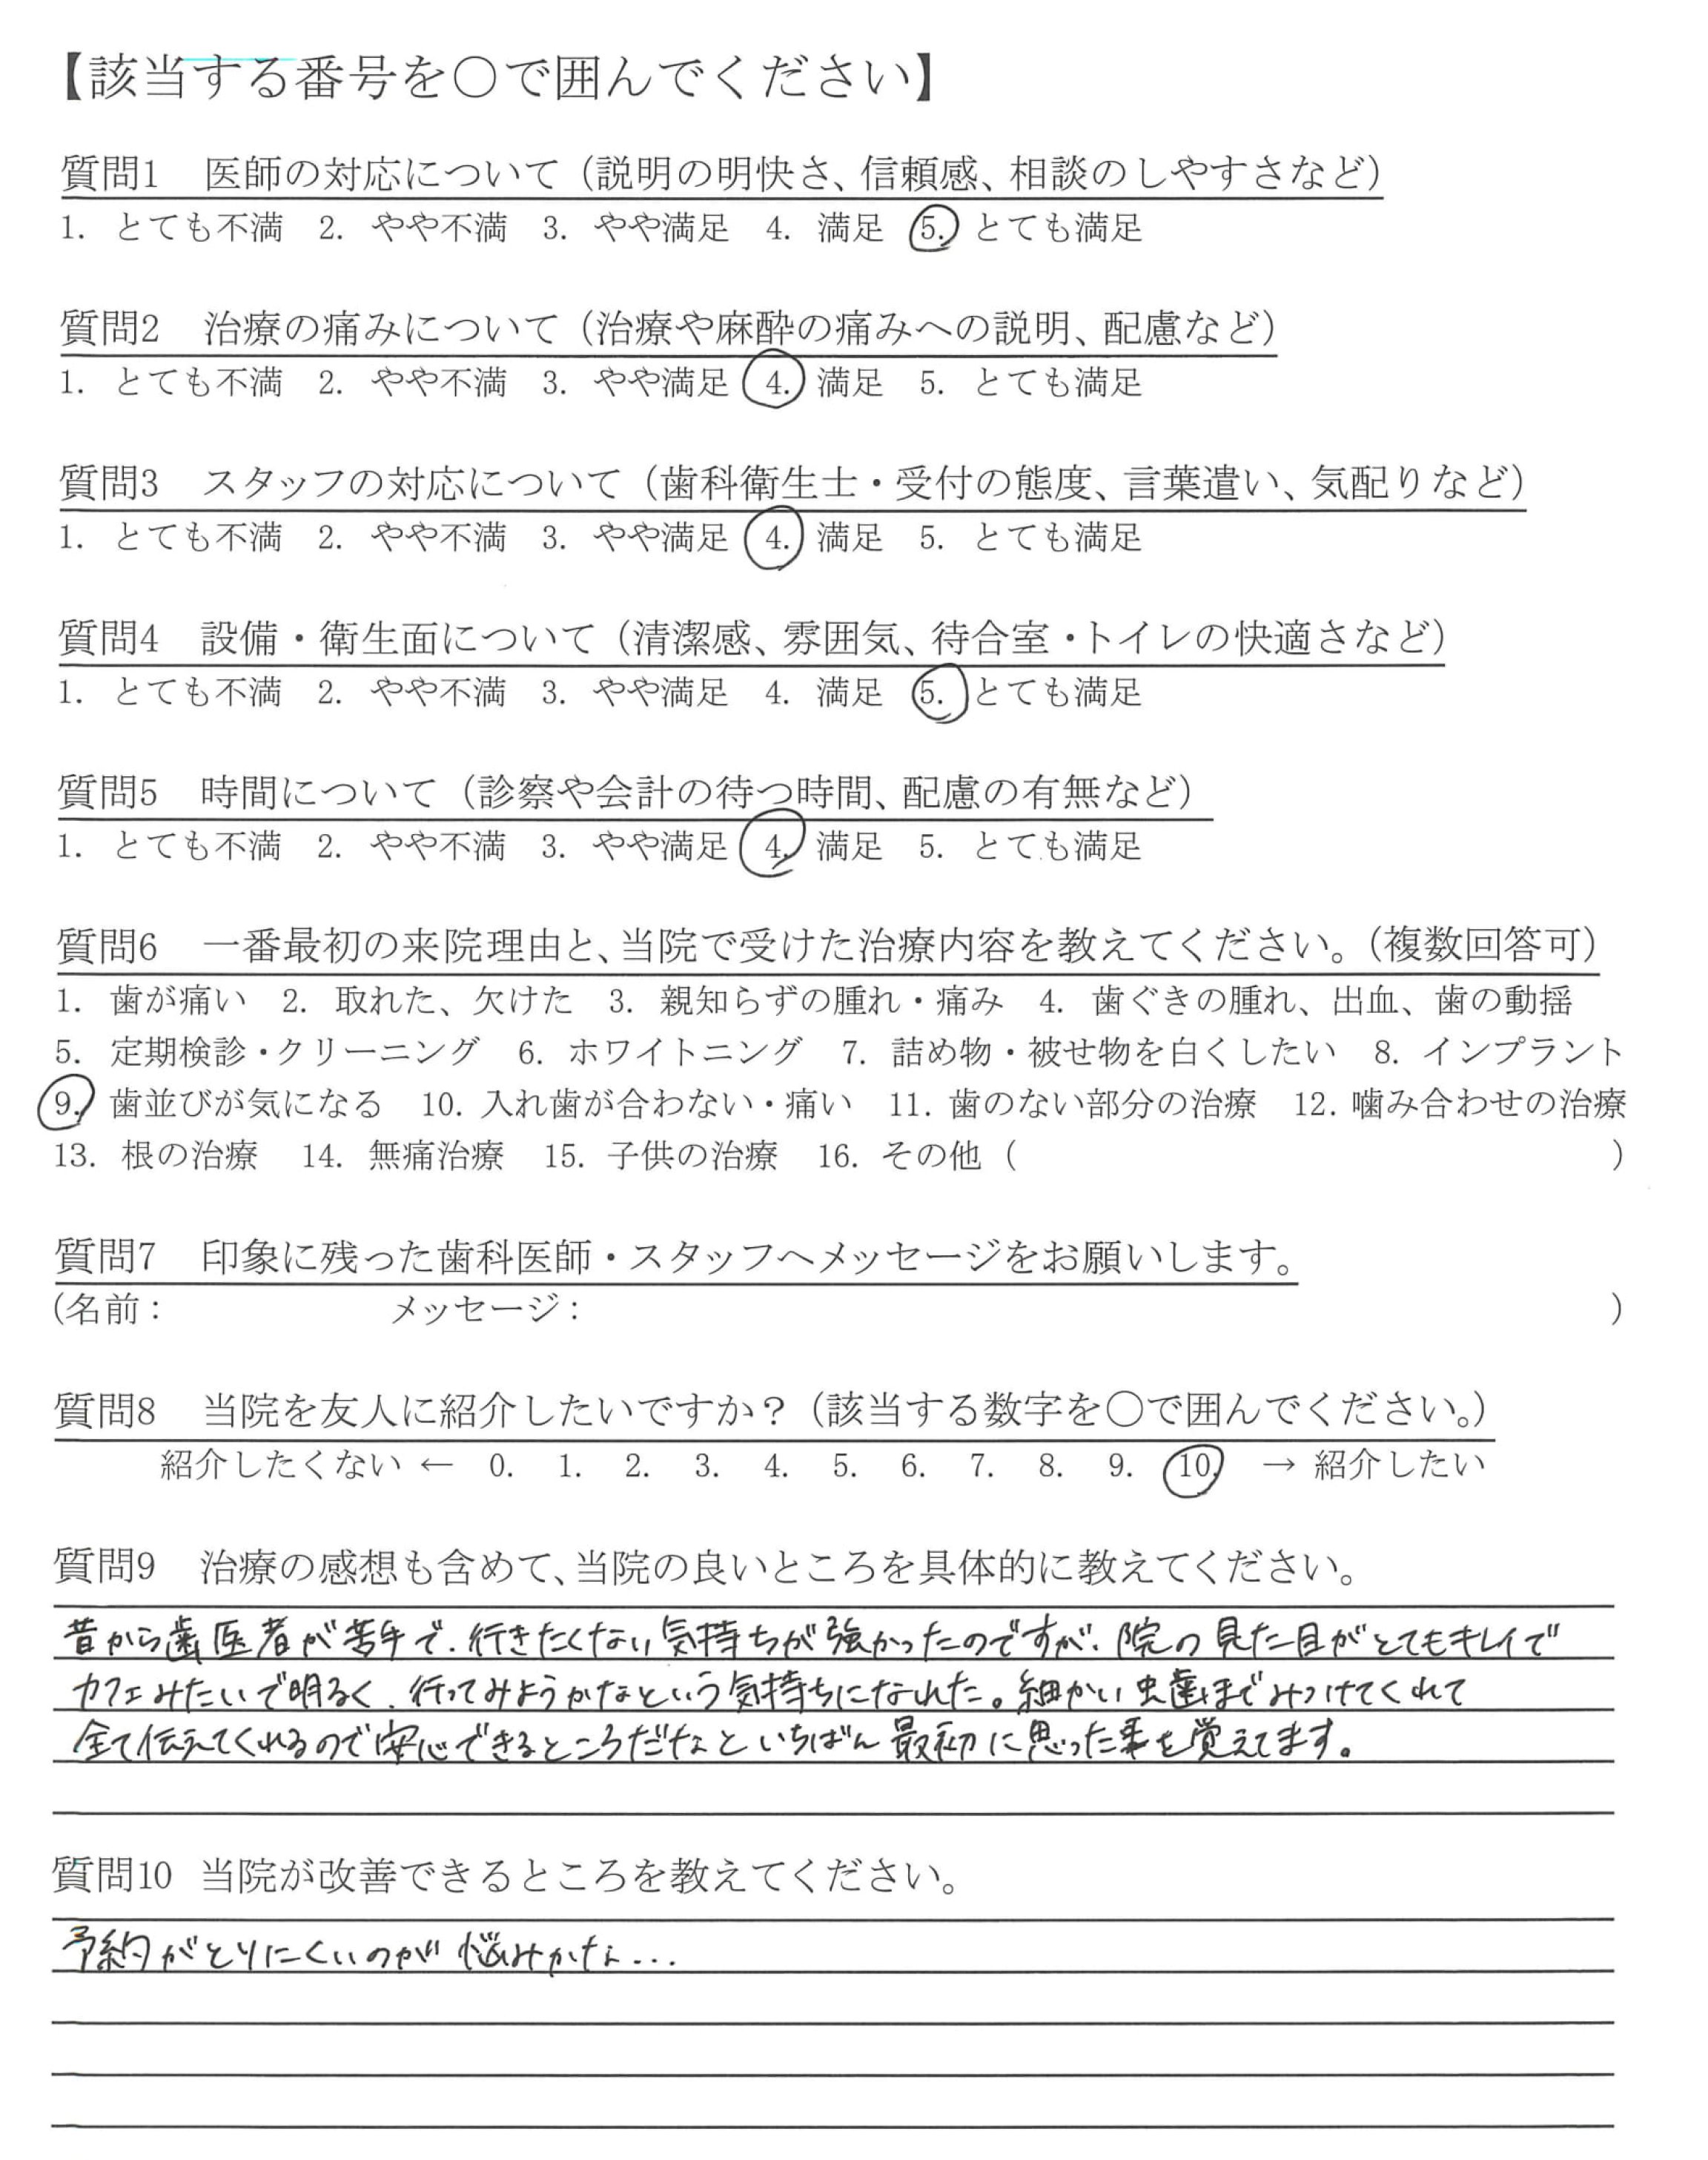 【該当する番号を○で囲んでください】
質問1　医師の対応について（説明の明快さ、信頼感、相談のしやすさなど）
1. とても不満　2. やや不満　3. やや満足　4. 満足　5. とても満足
質問2　治療の痛みについて（治療や麻酔の痛みへの説明、配慮など）
1. とても不満　2. やや不満　3. やや満足　4. 満足　5. とても満足
質問3　スタッフの対応について（歯科衛生士・受付の態度、言葉遣い、気配りなど）
1. とても不満　2. やや不満　3. やや満足　4. 満足　5. とても満足
質問4　設備・衛生面について（清潔感、雰囲気、待合室・トイレの快適さなど）
1. とても不満　2. やや不満　3. やや満足　4. 満足　5. とても満足
質問5　時間について（診察や会計の待つ時間、配慮の有無など）
1. とても不満　2. やや不満　3. やや満足　4. 満足　5. とても満足
質問6　一番最初の来院理由と、当院で受けた治療内容を教えてください。（複数回答可）
1. 歯が痛い　2. 取れた、欠けた　3. 親知らずの腫れ・痛み　4. 歯ぐきの腫れ、出血、歯の動揺
5. 定期検診・クリーニング　6. ホワイトニング　7. 詰め物・被せ物を白くしたい　8. インプラント
9. 歯並びが気になる　10. 入れ歯が合わない・痛い　11. 歯のない部分の治療　12. 噛み合わせの治療
13. 根の治療　14. 無痛治療　15. 子供の治療　16. その他（　　　　　　　　　　）
質問7　印象に残った歯科医師・スタッフへメッセージをお願いします。
（名前：　　　　　　メッセージ：　　　　　　　　　　）
質問8　当院を友人に紹介したいですか？（該当する数字を○で囲んでください。）
紹介したくない ← 0. 1. 2. 3. 4. 5. 6. 7. 8. 9. 10. → 紹介したい
質問9　治療の感想も含めて、当院の良いところを具体的に教えてください。
昔から歯医者が苦手で、行きたくない気持ちが強かったのですが、院の見た目がとてもキレイで
カフェみたいで明るく、行ってみようかなという気持ちになれた。細かい虫歯までみつけてくれて
全て伝えてくれるので安心できるところだなといちばん最初に思った事を覚えてます。
質問10　当院が改善できるところを教えてください。
予約がとりにくいのが悩みかな...